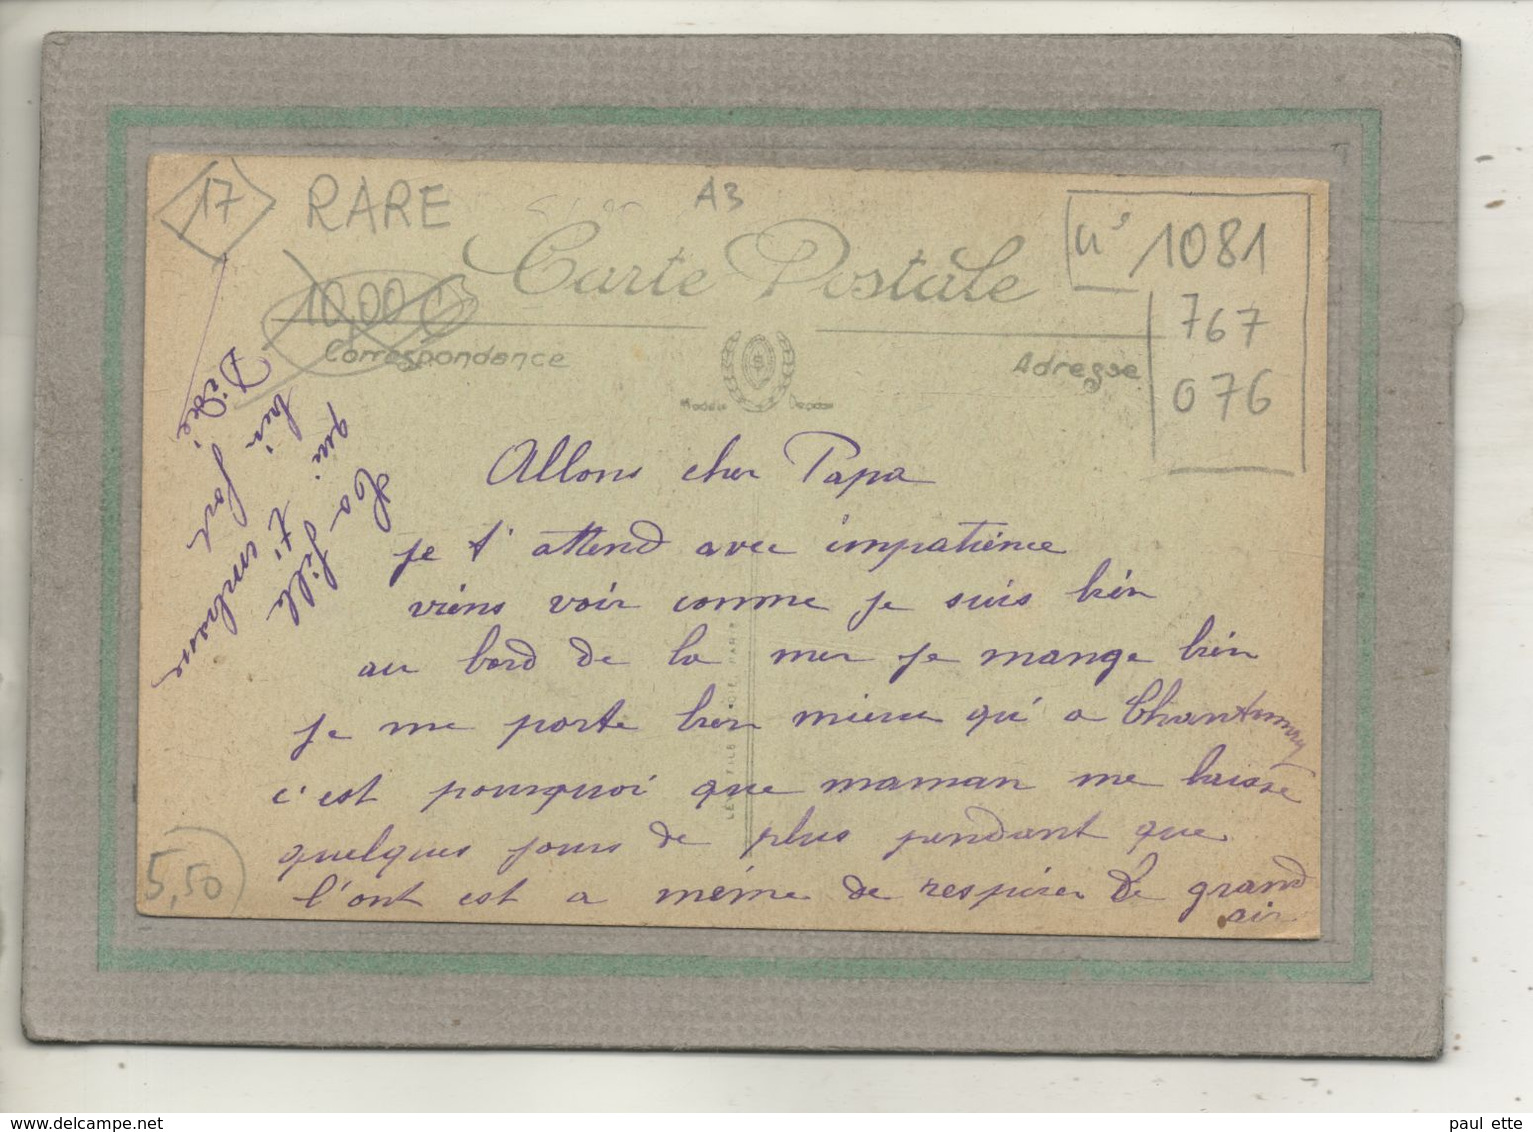 17
RARE
A3
10,00€
Carte Postale
n° 1081
767
076
Correspondance
Adresse
Modèle Déposé
Allons cher Papa
je t'attend avec impatience
viens voir comme je suis bien
au bord de la mer je mange bien
je me porte bien mieux qu'a Chantenay
c'est pourquoi que maman me laisse
quelques jours de plus pendant que
l'ont est a même de respirer le grand
air
Ta fille
qui t'embrasse
bien fort
Dédé
5,50
www.delcampe.net
paul ette